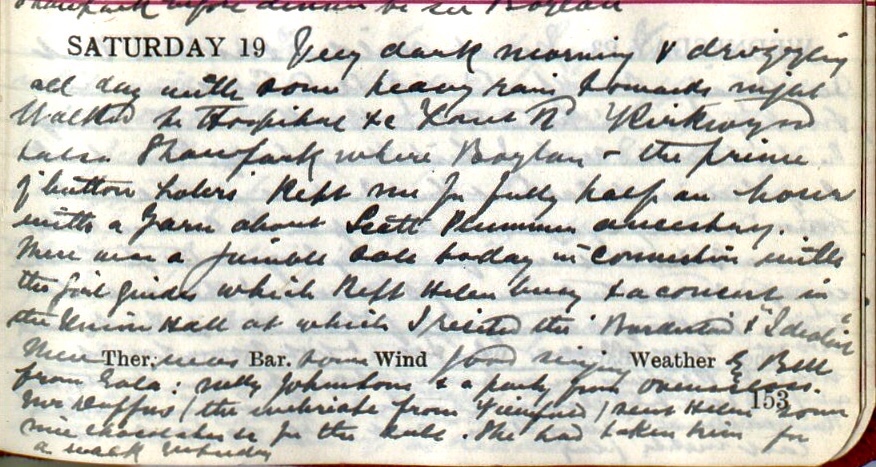 before dinner to see Boylan
SATURDAY 19 Very dark morning & drizzling
all day with some heavy rain towards night
Walked to Hospital &c & saw
also Shawpark where Boylan - the prime
of button holers kept me for fully half an hour
with a yarn about Scott Plummer ancestry.
There was a jumble sale today in connection with
the Girl Guides which kept Helen busy & a concert in
the Union Hall at which I recited the &
There Ther. was Bar. some Wind good singing Weather by Bell
from Gala: Nelly Johnstone & a party from overseas.
153
Mrs Duffus (the inebriate from Viewfield) sent Helen some
nice chocolates &c for the sale. She had taken him for
a week